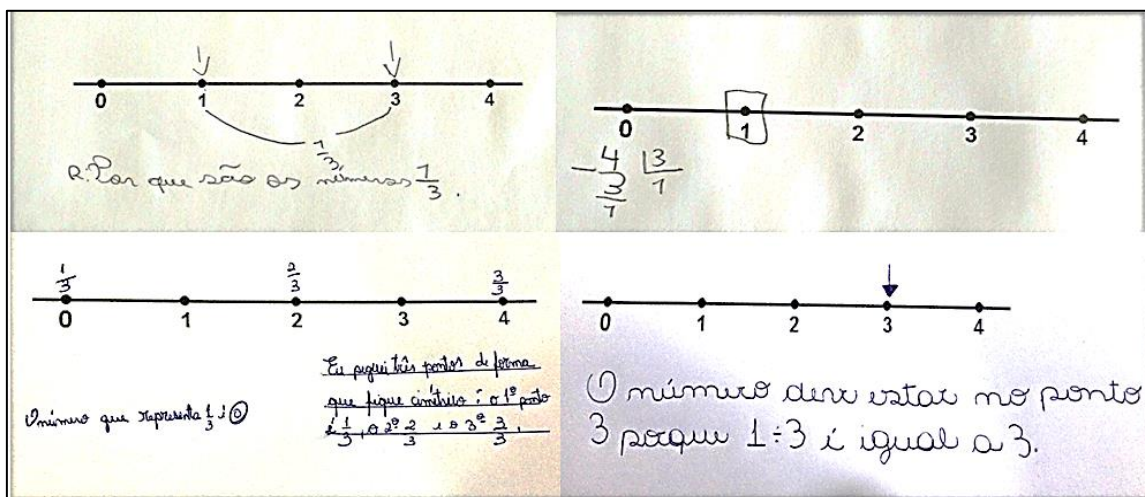 0 1 2 3 4
1/3
R. Por que são os números 1/3.
0 1 2 3 4
- 4 | 3
3 1
1
1/3 2/3 3/3
0 1 2 3 4
O número que representa 1/3 é 0
Eu peguei três pontos de forma
que fique cimétrico: o 1º ponto
é 1/3, o 2º 2/3 e o 3º 3/3.
0 1 2 3 4
O número deve estar no ponto
3 porque 1÷3 é igual a 3.